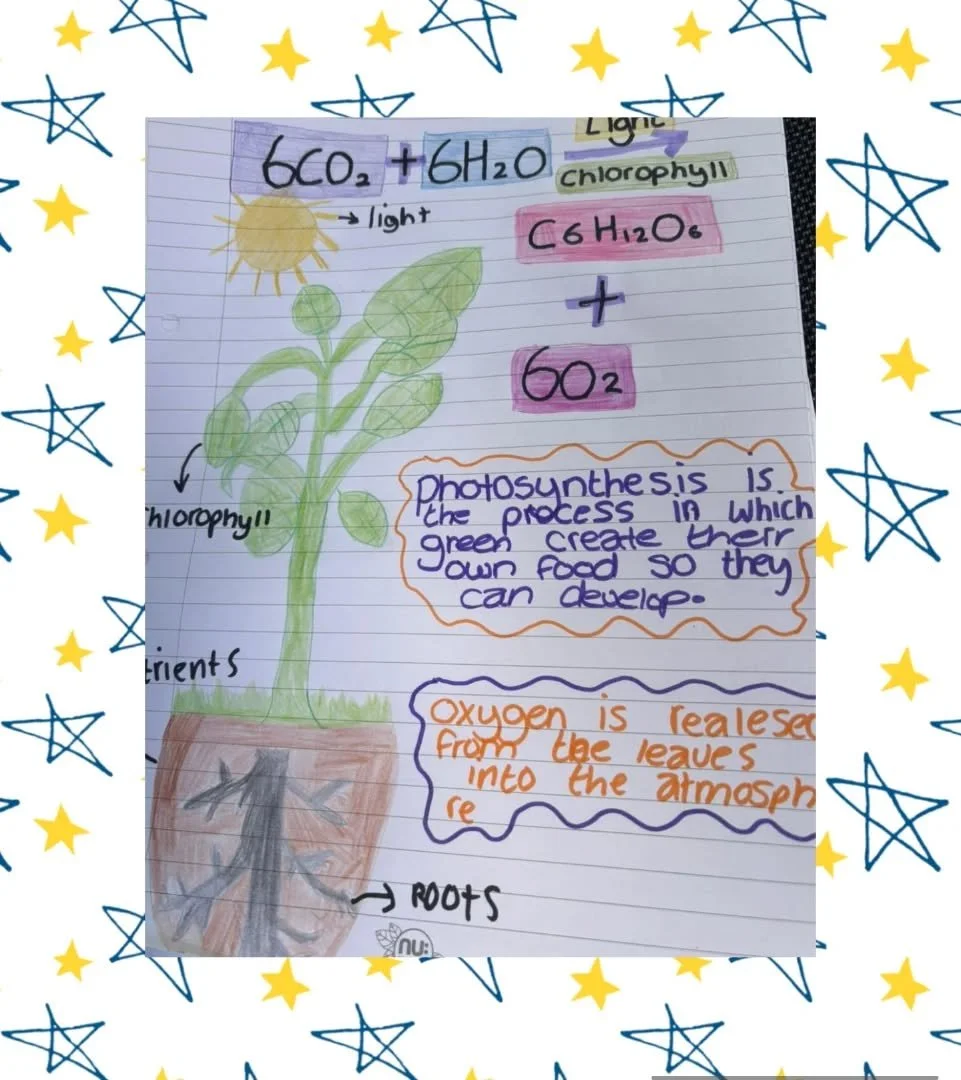 6CO₂ + 6H₂O
Light
chlorophyll
→ light
C6H₁₂O₆
+
6O₂
Photosynthesis is
the process in which
green create therr
own food so they
can develop.
hlorophyll
trients
Oxygen is realesed
from the leaves
into the atmosph
re
→ ROOtS
nu: